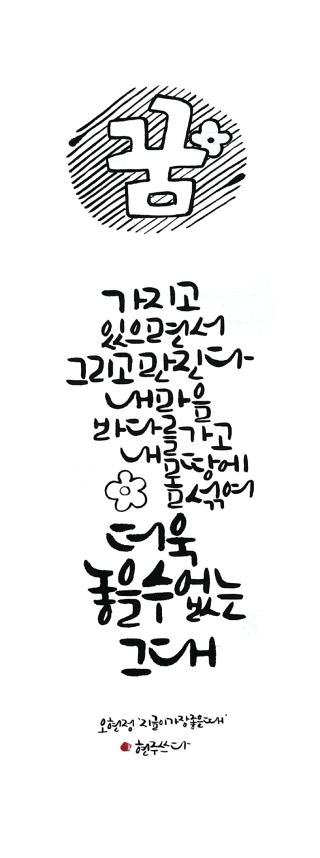 꿈
가지고
있으면서
그리고 만진다
내 마음
바다를 가고
내 땅에
섞여
더욱
놓을 수 없는
그대
오현정 '지금이 가장 좋을 때'
현주쓰다